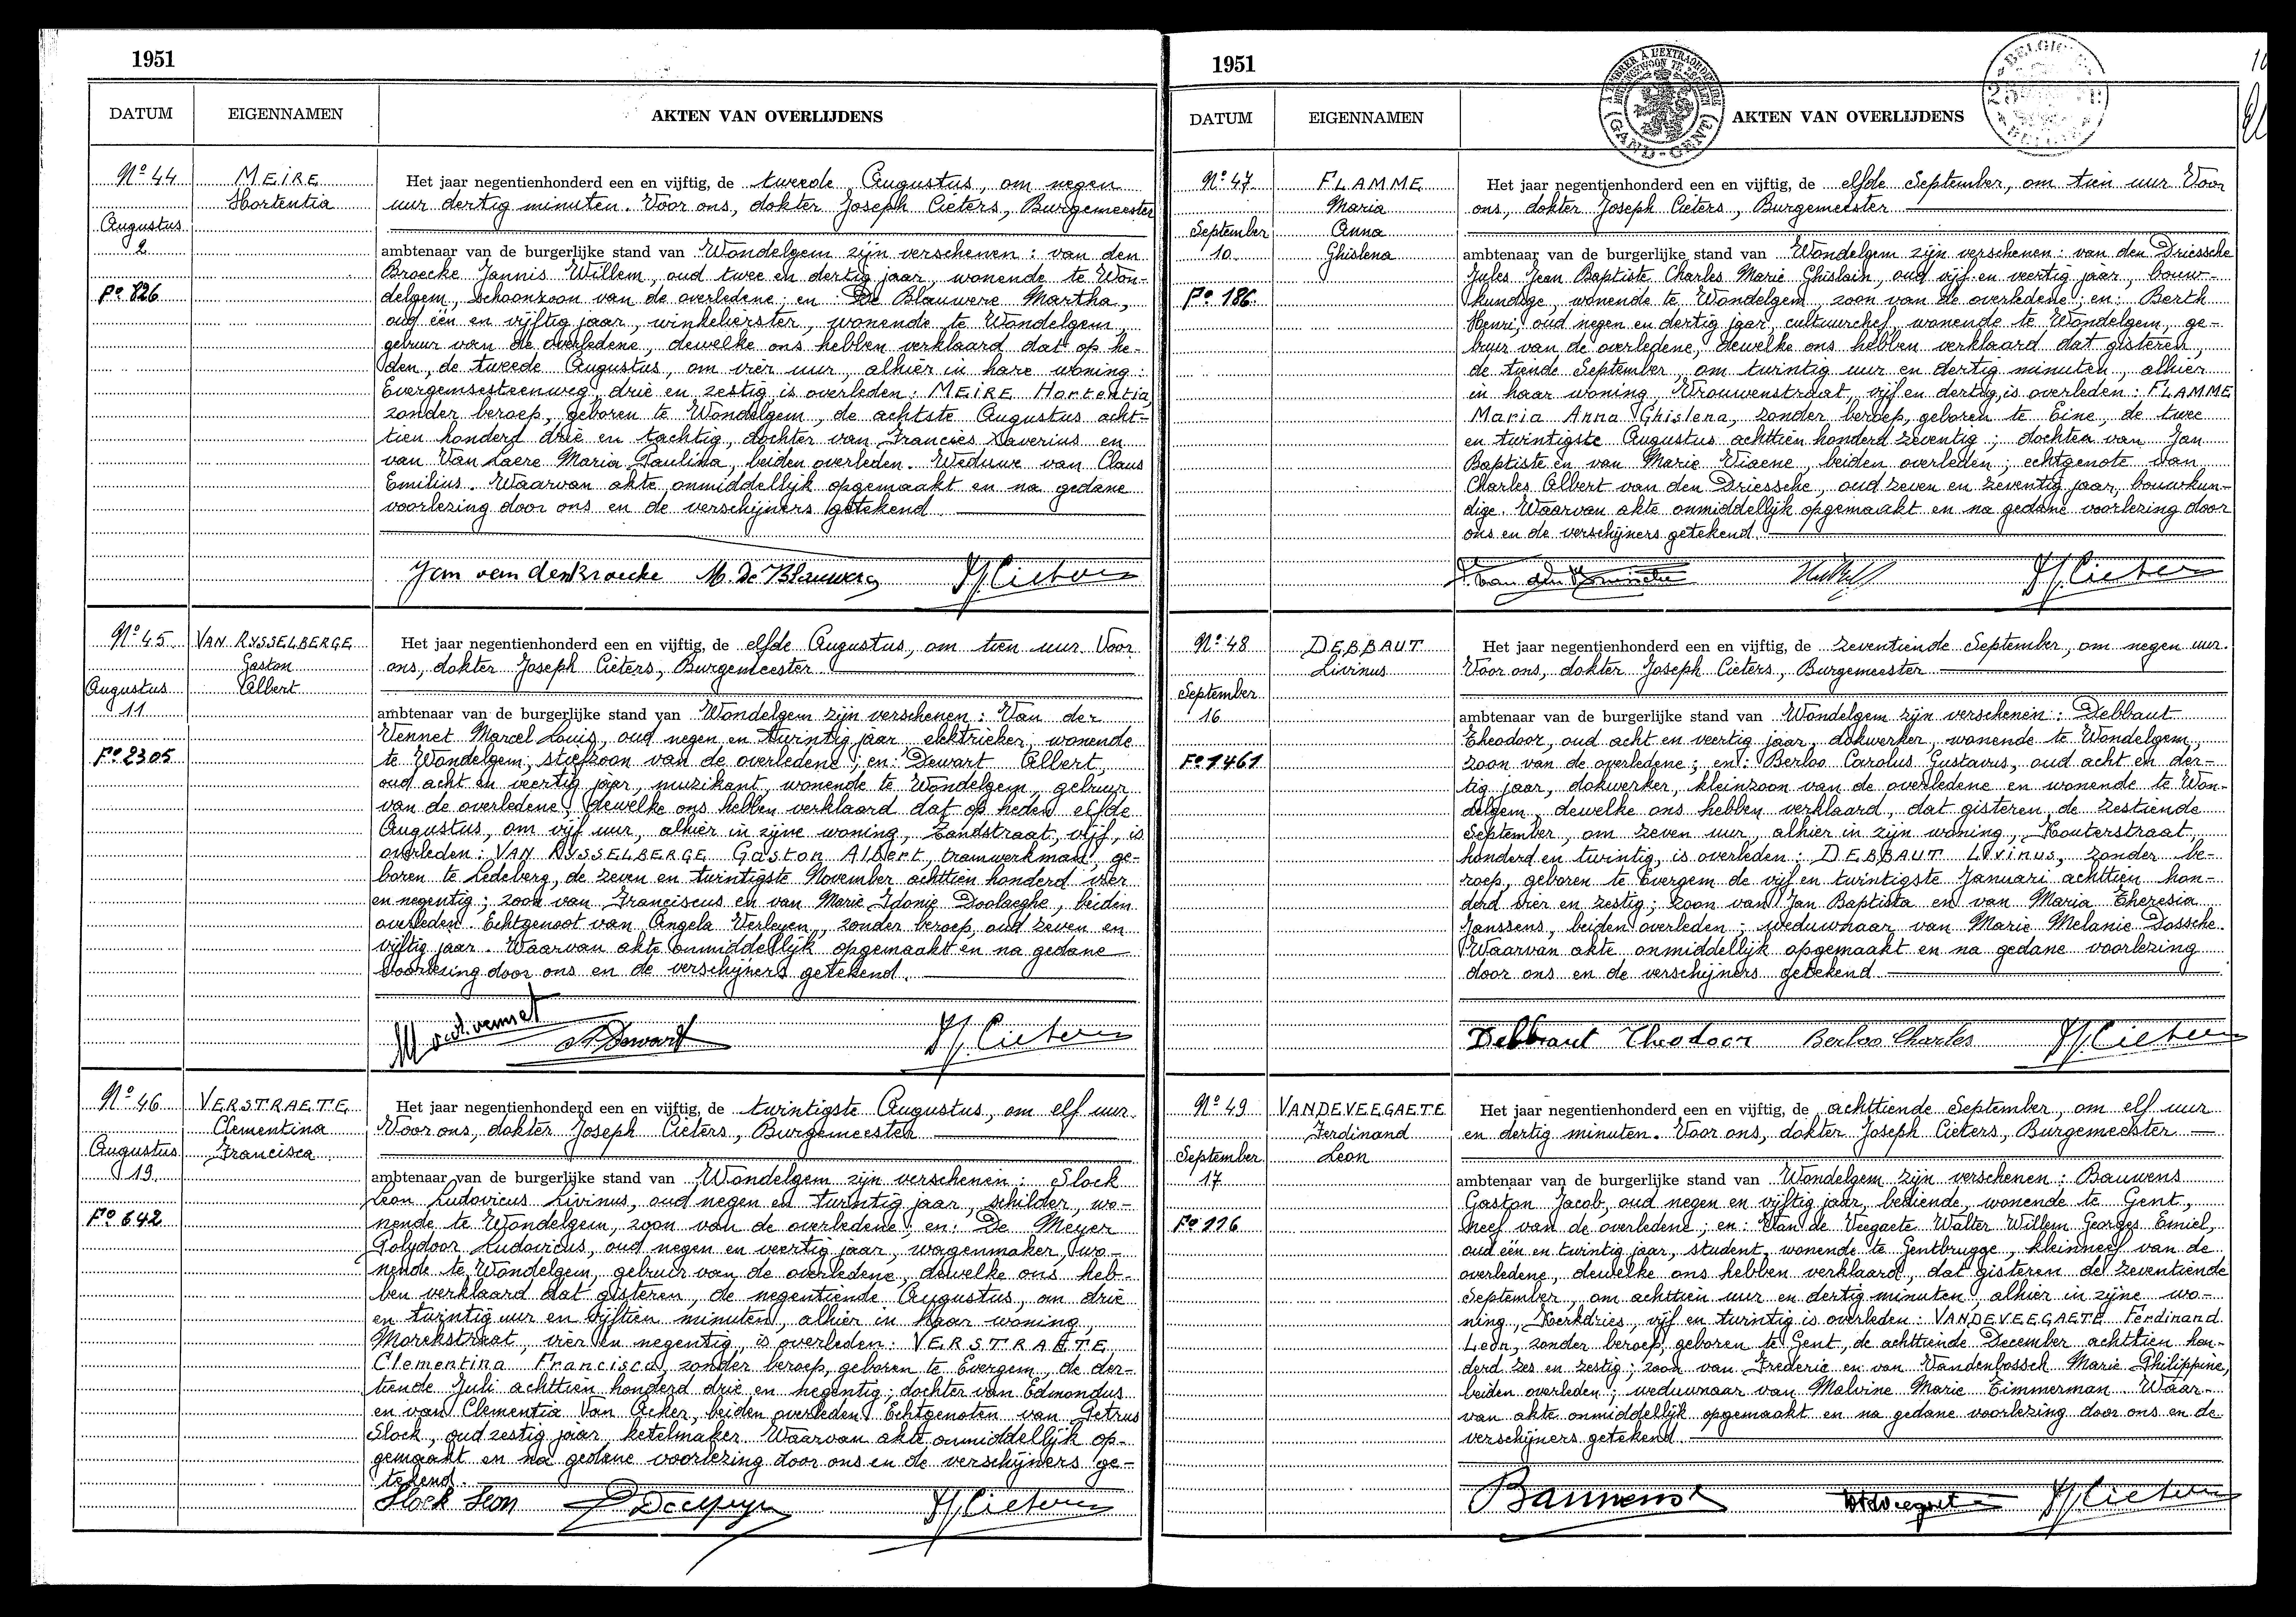 1951
DATUM
EIGENNAMEN
AKTEN VAN OVERLIJDENS
No 44
MEIRE
Hortentia
Augustus
2
Fo 826
Het jaar negentienhonderd een en vijftig, de tweede Augustus, om negen
uur dertig minuten. Voor ons, dokter Joseph Cieters, Burgemeester
ambtenaar van de burgerlijke stand van Wondelgem zijn verschenen : van den
Broecke Jannis Willem, oud twee en dertig jaar, wonende te Won-
delgem, schoonzoon van de overledene; en : De Blauwere Martha,
oud één en vijftig jaar, winkelierster, wonende te Wondelgem,
gebuur van de overledene, dewelke ons hebben verklaard dat op he-
den, de tweede Augustus, om vier uur, alhier in hare woning :
Evergemsesteenweg, drie en zestig, is overleden : MEIRE Hortentia,
zonder beroep, geboren te Wondelgem, de achtste Augustus acht-
tien honderd drie en tachtig, dochter van Francies Xaverius en
van Van Laere Maria Paulina, beiden overleden. Weduwe van Claus
Emilius. Waarvan akte onmiddellijk opgemaakt en na gedane
voorlezing door ons en de verschijners getekend.
Jan van den Broecke M. De Blauwere J. Cieters
No 45
VAN RYSSELBERGE
Gaston
Albert
Augustus
11
Fo 2305
Het jaar negentienhonderd een en vijftig, de elfde Augustus, om tien uur. Voor
ons, dokter Joseph Cieters, Burgemeester
ambtenaar van de burgerlijke stand van Wondelgem zijn verschenen : Van der
Vennet Marcel Louis, oud negen en twintig jaar, elektrieker, wonende
te Wondelgem, stiefzoon van de overledene; en : Dewart Albert,
oud acht en veertig jaar, muzikant, wonende te Wondelgem, gebuur
van de overledene, dewelke ons hebben verklaard dat op heden elfde
Augustus, om vijf uur, alhier in zijne woning, Zandstraat, vijf, is
overleden : VAN RYSSELBERGE Gaston Albert, tramwerkman, ge-
boren te Ledeberg, de zeven en twintigste November achttien honderd vier
en negentig; zoon van Franciscus en van Marie Idonie Doolaeghe, beiden
overleden. Echtgenoot van Angela Verleyen, zonder beroep, oud zeven en
vijftig jaar. Waarvan akte onmiddellijk opgemaakt en na gedane
voorlezing door ons en de verschijners getekend.
M. v.d. Vennet A. Dewart J. Cieters
No 46
VERSTRAETE
Clementina
Francisca
Augustus
19
Fo 642
Het jaar negentienhonderd een en vijftig, de twintigste Augustus, om elf uur.
Voor ons, dokter Joseph Cieters, Burgemeester
ambtenaar van de burgerlijke stand van Wondelgem zijn verschenen : Slock
Leon Ludovicus Livinus, oud negen en twintig jaar, schilder, wo-
nende te Wondelgem, zoon van de overledene; en : De Meyer
Polydoor Ludovicus, oud negen en veertig jaar, wagenmaker, wo-
nende te Wondelgem, gebuur van de overledene, dewelke ons heb-
ben verklaard dat gisteren, de negentiende Augustus, om drie
en twintig uur en vijftien minuten, alhier in haar woning,
Morekstraat, vier en negentig, is overleden : VERSTRAETE
Clementina Francisca, zonder beroep, geboren te Evergem, de der-
tiende Juli achttien honderd drie en negentig; dochter van Edmondus
en van Clementia Van Acker, beiden overleden. Echtgenoten van Petrus
Slock, oud zestig jaar, ketelmaker. Waarvan akte onmiddellijk op-
gemaakt en na gedane voorlezing door ons en de verschijners ge-
tekend.
Slock Leon P. Demeyer J. Cieters
1951
GAND-GENT
BELGIE
DATUM
EIGENNAMEN
AKTEN VAN OVERLIJDENS
No 47
FLAMME
Maria
Anna
Ghislena
September
10
Fo 186
Het jaar negentienhonderd een en vijftig, de elfde September, om tien uur Voor
ons, dokter Joseph Cieters, Burgemeester
ambtenaar van de burgerlijke stand van Wondelgem zijn verschenen : van den Driessche
Jules Jean Baptiste Charles Marie Ghislain, oud vijf en veertig jaar, bouw-
kundige, wonende te Wondelgem, zoon van de overledene; en : Berth
Henri, oud negen en dertig jaar, cultuurchef, wonende te Wondelgem, ge-
buur van de overledene, dewelke ons hebben verklaard dat gisteren,
de tiende September, om twintig uur en dertig minuten, alhier
in haar woning, Vrouwenstraat, vijf en dertig, is overleden : FLAMME
Maria Anna Ghislena, zonder beroep, geboren te Eine, de twee
en twintigste Augustus achttien honderd zeventig; dochter van Jan
Baptiste en van Marie Viaene, beiden overleden; echtgenote van
Charles Albert van den Driessche, oud zeven en zeventig jaar, bouwkun-
dige. Waarvan akte onmiddellijk opgemaakt en na gedane voorlezing door
ons en de verschijners getekend.
J. van den Driessche J. Cieters
No 48
DEBBAUT
Livinus
September
16
Fo 1461
Het jaar negentienhonderd een en vijftig, de zeventiende September, om negen uur.
Voor ons, dokter Joseph Cieters, Burgemeester
ambtenaar van de burgerlijke stand van Wondelgem zijn verschenen : Debbaut
Theodoor, oud acht en veertig jaar, dokwerker, wonende te Wondelgem,
zoon van de overledene; en : Berloo Carolus Gustavus, oud acht en der-
tig jaar, dokwerker, kleinzoon van de overledene en wonende te Won-
delgem, dewelke ons hebben verklaard, dat gisteren, de zestiende
September, om zeven uur, alhier in zijn woning, Kouterstraat,
honderd en twintig, is overleden : DEBBAUT Livinus, zonder be-
roep, geboren te Evergem de vijf en twintigste Januari achttien hon-
derd vier en zestig; zoon van Jan Baptista en van Maria Theresia
Janssens, beiden overleden; weduwnaar van Marie Melanie Dossche.
Waarvan akte onmiddellijk opgemaakt en na gedane voorlezing
door ons en de verschijners getekend
Debbaut Theodoor Berloo Charles J. Cieters
No 49
VANDEVEEGAETE
Ferdinand
Leon
September
17
Fo 116
Het jaar negentienhonderd een en vijftig, de achttiende September, om elf uur
en dertig minuten. Voor ons, dokter Joseph Cieters, Burgemeester
ambtenaar van de burgerlijke stand van Wondelgem zijn verschenen : Bauwens
Gaston Jacob, oud negen en vijftig jaar, bediende, wonende te Gent,
neef van de overledene; en : Van de Veegaete Walter Willem Georges Emiel,
oud één en twintig jaar, student, wonende te Gentbrugge, kleinneef van de
overledene, dewelke ons hebben verklaard, dat gisteren de zeventiende
September, om achttien uur en dertig minuten, alhier in zijne wo-
ning, Kerkdries, vijf en twintig is overleden : VANDEVEEGAETE Ferdinand
Leon, zonder beroep, geboren te Gent, de achttiende December achttien hon-
derd zes en zestig; zoon van Frederic en van Vandenbossch Marie Philippine,
beiden overleden; weduwnaar van Malvine Marie Timmerman. Waar-
van akte onmiddellijk opgemaakt en na gedane voorlezing door ons en de
verschijners getekend.
Bauwens J. Cieters